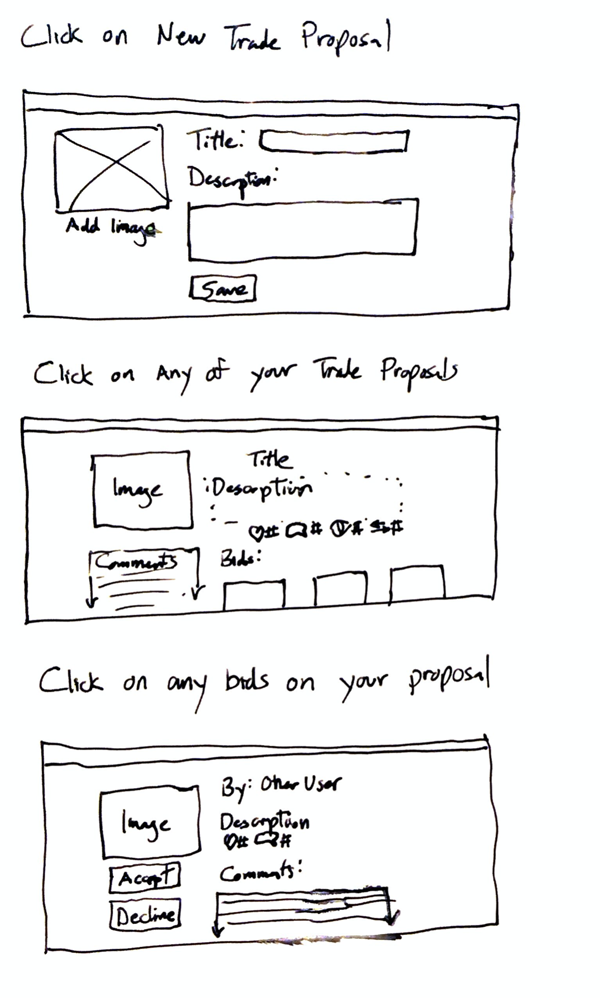 Click on New Trade Proposal
Title:
Description:
Add Image
Save
Click on Any of your Trade Proposals
Image
Title
Description
# # # #
Comments
Bids:
Click on any bids on your proposal
Image
By: Other User
Description
# #
Accept
Comments:
Decline